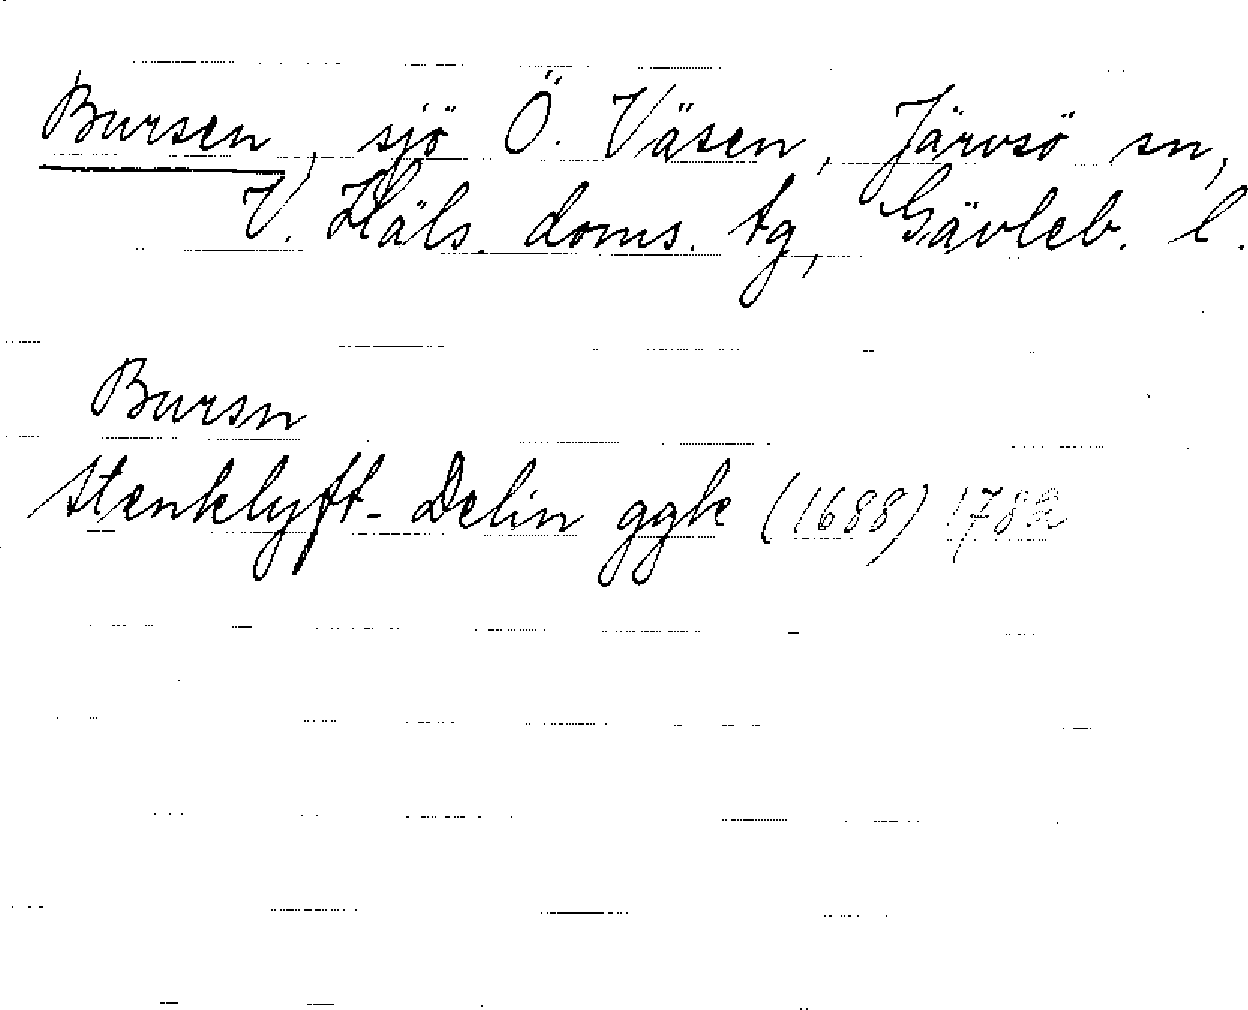 Bursen, sjö Ö. Väsen, Järvsö sn,
V. Häls. doms. tg, Gävleb. l.
Bursn
Stenklyft-Delin ggk (1688)